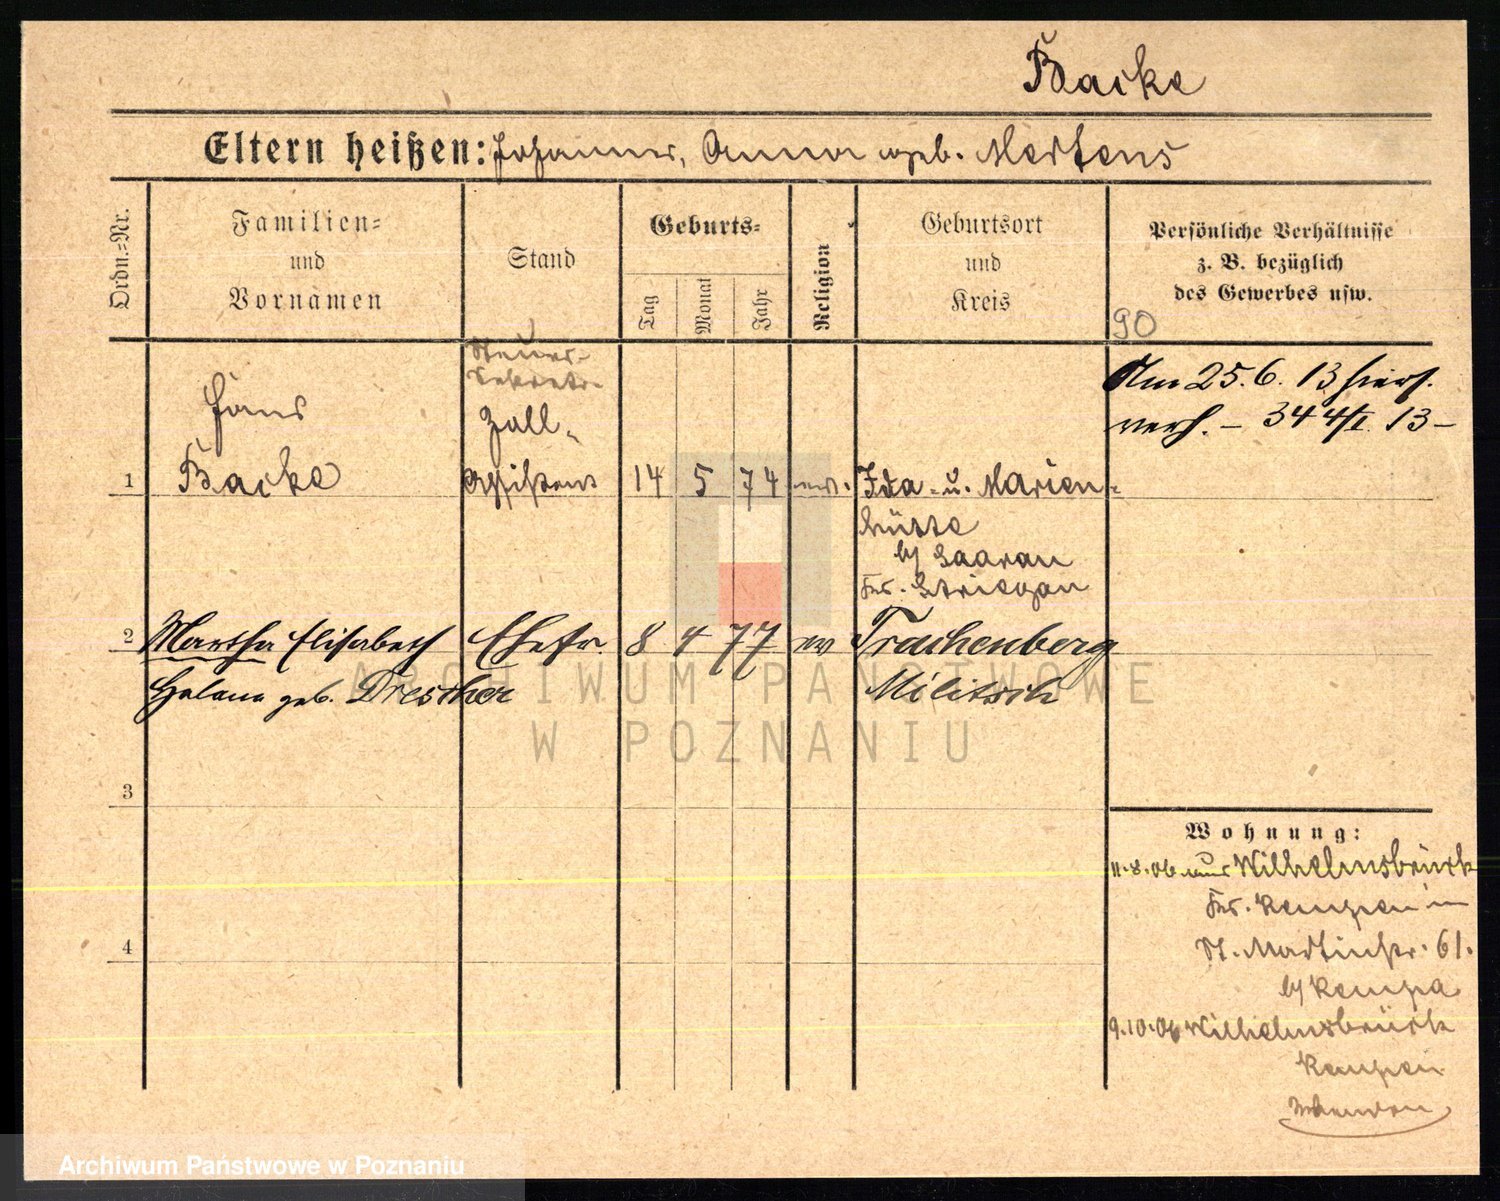 Backe
Eltern heißen: Johannes, Anna geb. Mertens
Ordn.=Nr.
Familien=
und
Vornamen
Stand
Geburts=
Tag
Monat
Jahr
Religion
Geburtsort
und
Kreis
Persönliche Verhältnisse
z. B. bezüglich
des Gewerbes usw.
90
Steuer-
Sekretär
Am 25. 6. 13 hiers.
verh. – 344/I. 13 –
Hans
Zoll-
1 Backe Assistent 14 5 74 ev. Ida- u. Marien-
hütte
b/ Saarau
Kr. Striegau
2 Martha Elisabeth Ehefr. 8 4 77 ev Trachenberg
Helene geb. Drescher Militsch
3
4
Wohnung:
11.8.06 aus Wilhelmsbrück
Kr. Kempen in
St. Martinstr. 61.
b/ Kempa
9.10.06 Wilhelmsbrück
Kempen
ARCHIWUM PAŃSTWOWE
W POZNANIU
Archiwum Państwowe w Poznaniu